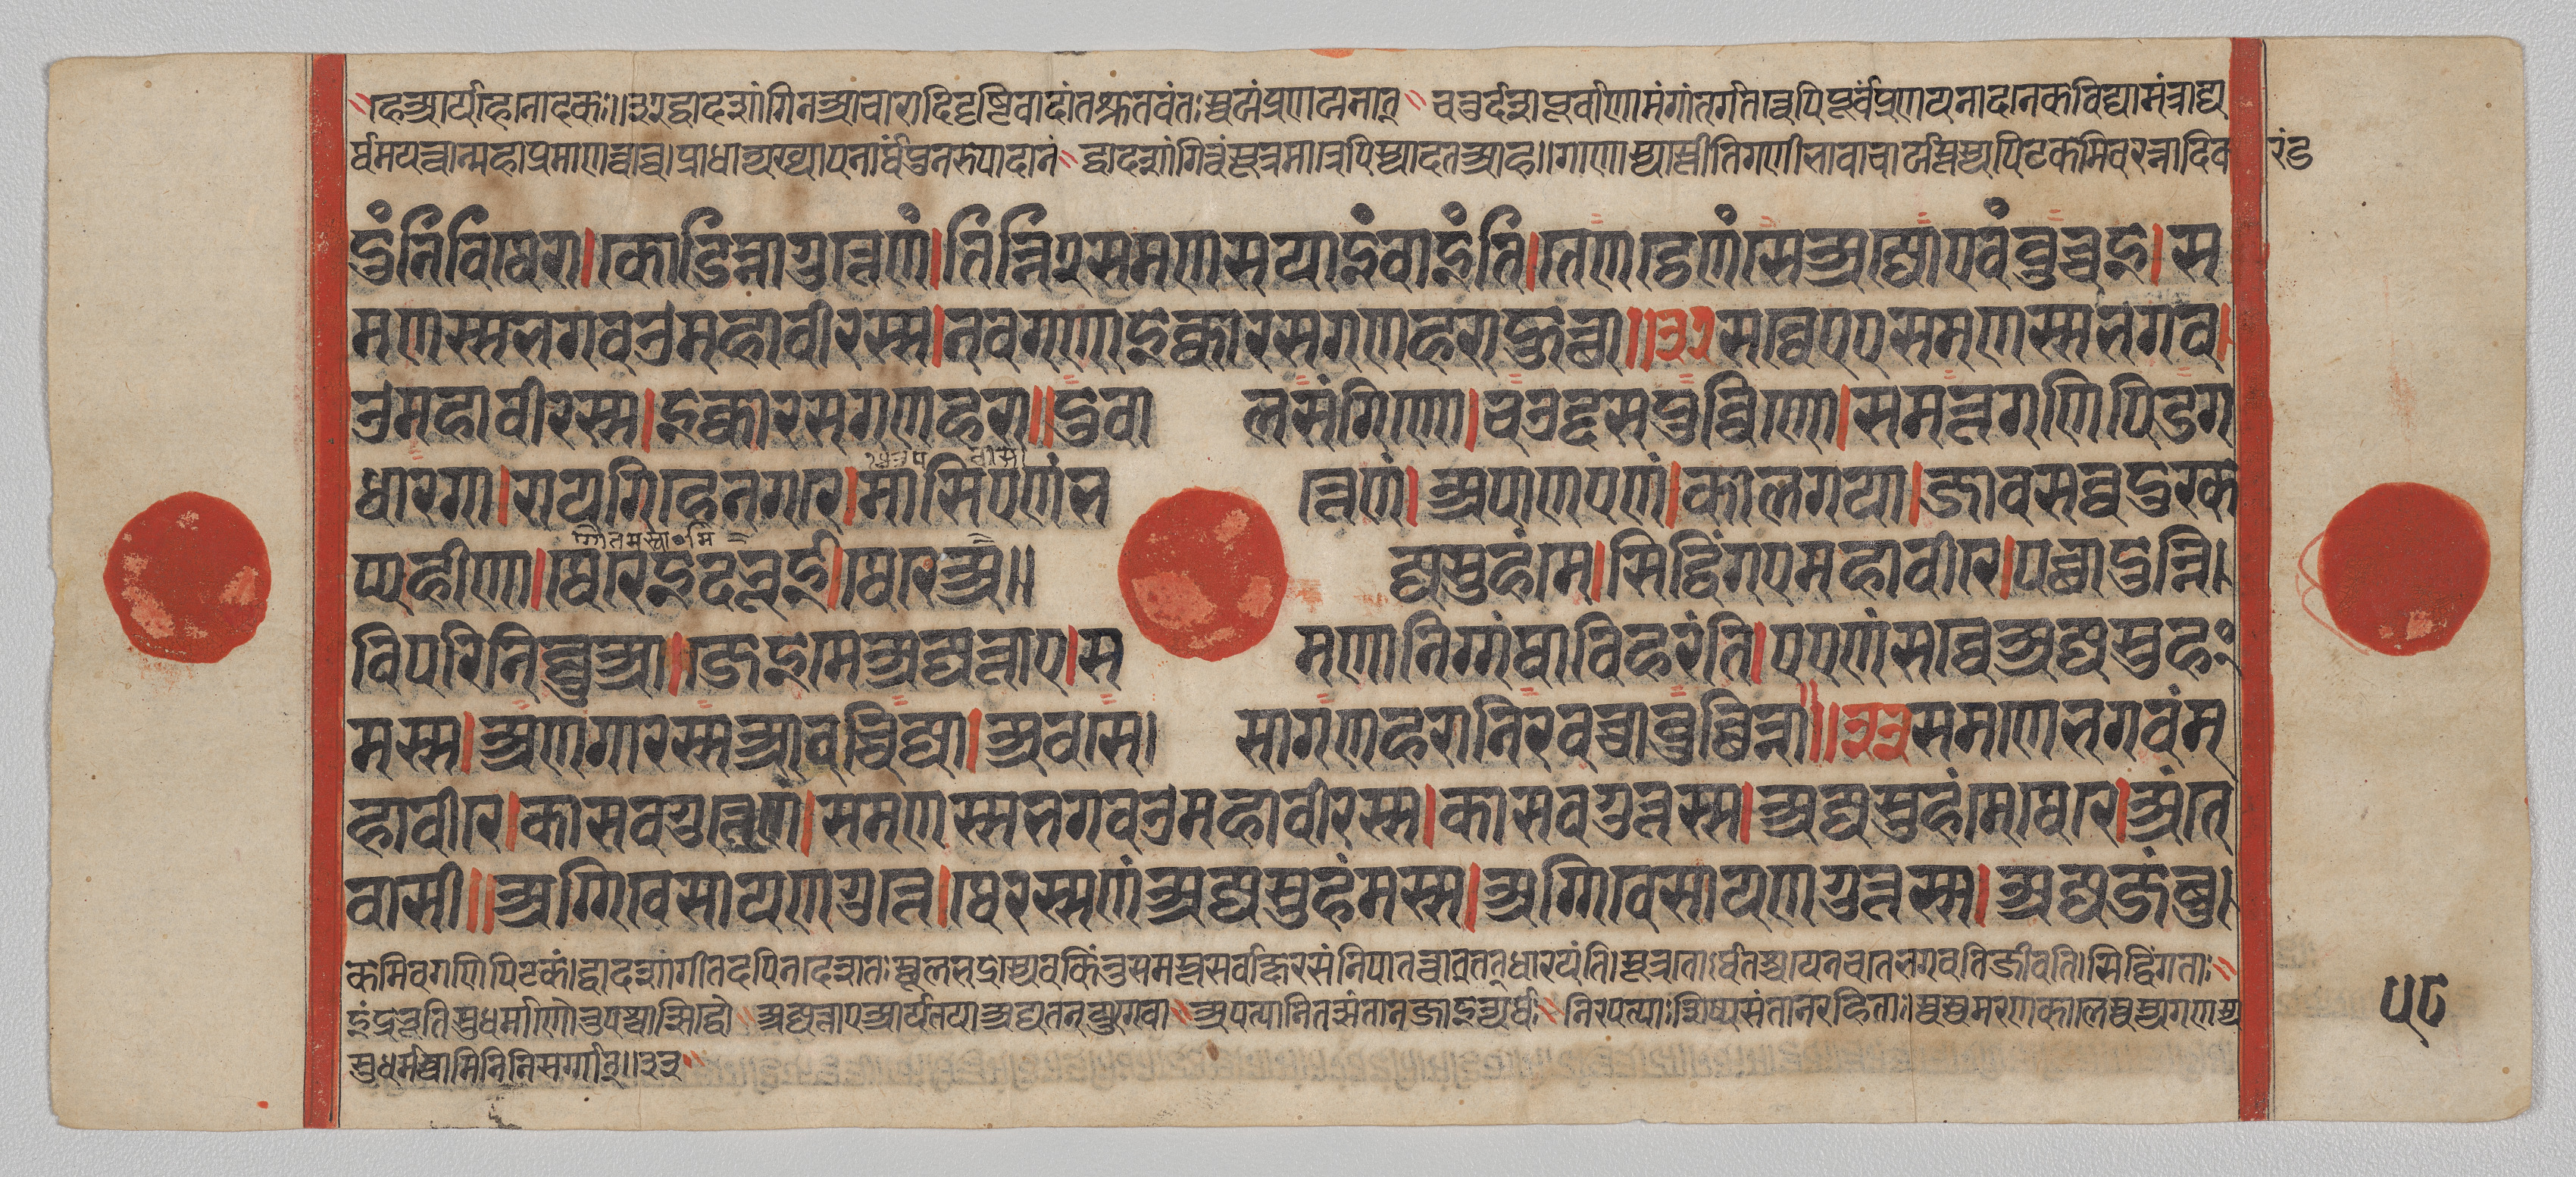 द्वादशांगिन आचारादिदृष्टिवादांतश्रुतवंतः स्वयं प्रणयनात् चतुर्दशपूर्वाणामंगांतर्गतत्वेपि पूर्वं प्रणयनादनेकविद्यामंत्राद्य
र्थमयत्वान्महाप्रमाणत्वाच्च। प्राधान्यख्यापनार्थं पुनरुपादानं द्वादशांगित्वं सूत्रमात्रेपि स्यादत आह। गणोस्यास्तीति गणी भावाचार्यस्तस्य पिटकमिव रत्नादिक रंड
दुंनि वि थेरा। कोडिन्ना गुत्तेणं। तिन्नि २ समणसयाइं वाइंति। तेणट्ठेणं से अज्जो एवं वुच्चइ। स
मणस्स भगवओ महावीरस्स। नव गणा इक्कारस गणहरा हुत्था॥३२ सव्वे एए समणस्स भगव
ओ महावीरस्स। इक्कारस गणहरा॥ दुवालसंगिणो। चउद्दसपुव्विणो। समत्तगणिपिडग
धारगा। रायगिहे नगरे। मासिएणं भत्तेणं। अपाणएणं। कालगया। जाव सव्वदुरक
प्पहीणा। थेरे इंदभूई। थेरे अज्जसुहंमे। सिद्धिं गए महावीरे। पच्छा दुन्नि
गौतमस्वामि
वि परिनिव्वुआ। जे इमे अज्जत्ताए। समणा निग्गंथा विहरंति। एए णं सव्वे अज्जसुह
मस्स। अणगारस्स आवच्चिज्जा। अवसेसा गणहरा निरवच्चा वुच्छिन्ना॥३३ समणे भगवं म
हावीरे। कासवगुत्तेणं। समणस्स भगवओ महावीरस्स। कासवगुत्तस्स। अज्जसुहंमे थेरे। अंते
वासी॥ अग्गिवेसायणगुत्ते। थेरस्स णं अज्जसुहंमस्स। अग्गिवेसायणगुत्तस्स। अज्जजंबु
कमिव गणिपिटकं। द्वादशांगी तदपि न देशतः स्थूलभद्रस्येव किंतु समस्तसर्वाक्षरसंनिपातत्वात् तत् धारयंति। सूत्रतोर्थतश्च भगवति जीवति। सिद्धिं गताः
इंद्रभूति सुधर्माणौ अज्जत्ताए आर्यतया अद्यतनयुगे वा अपत्यानि तत्संतानजा इत्यर्थः निरपत्याः शिष्यसंतानरहिताः। स्वस्वमरणकाले स्वस्वगणस्य
सुधर्मस्वामिनि निसर्गात्॥३३
५८